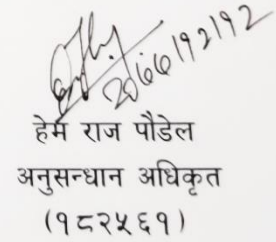 २०७७।१२।१२
हेम राज पौडेल
अनुसन्धान अधिकृत
(१८२५६१)